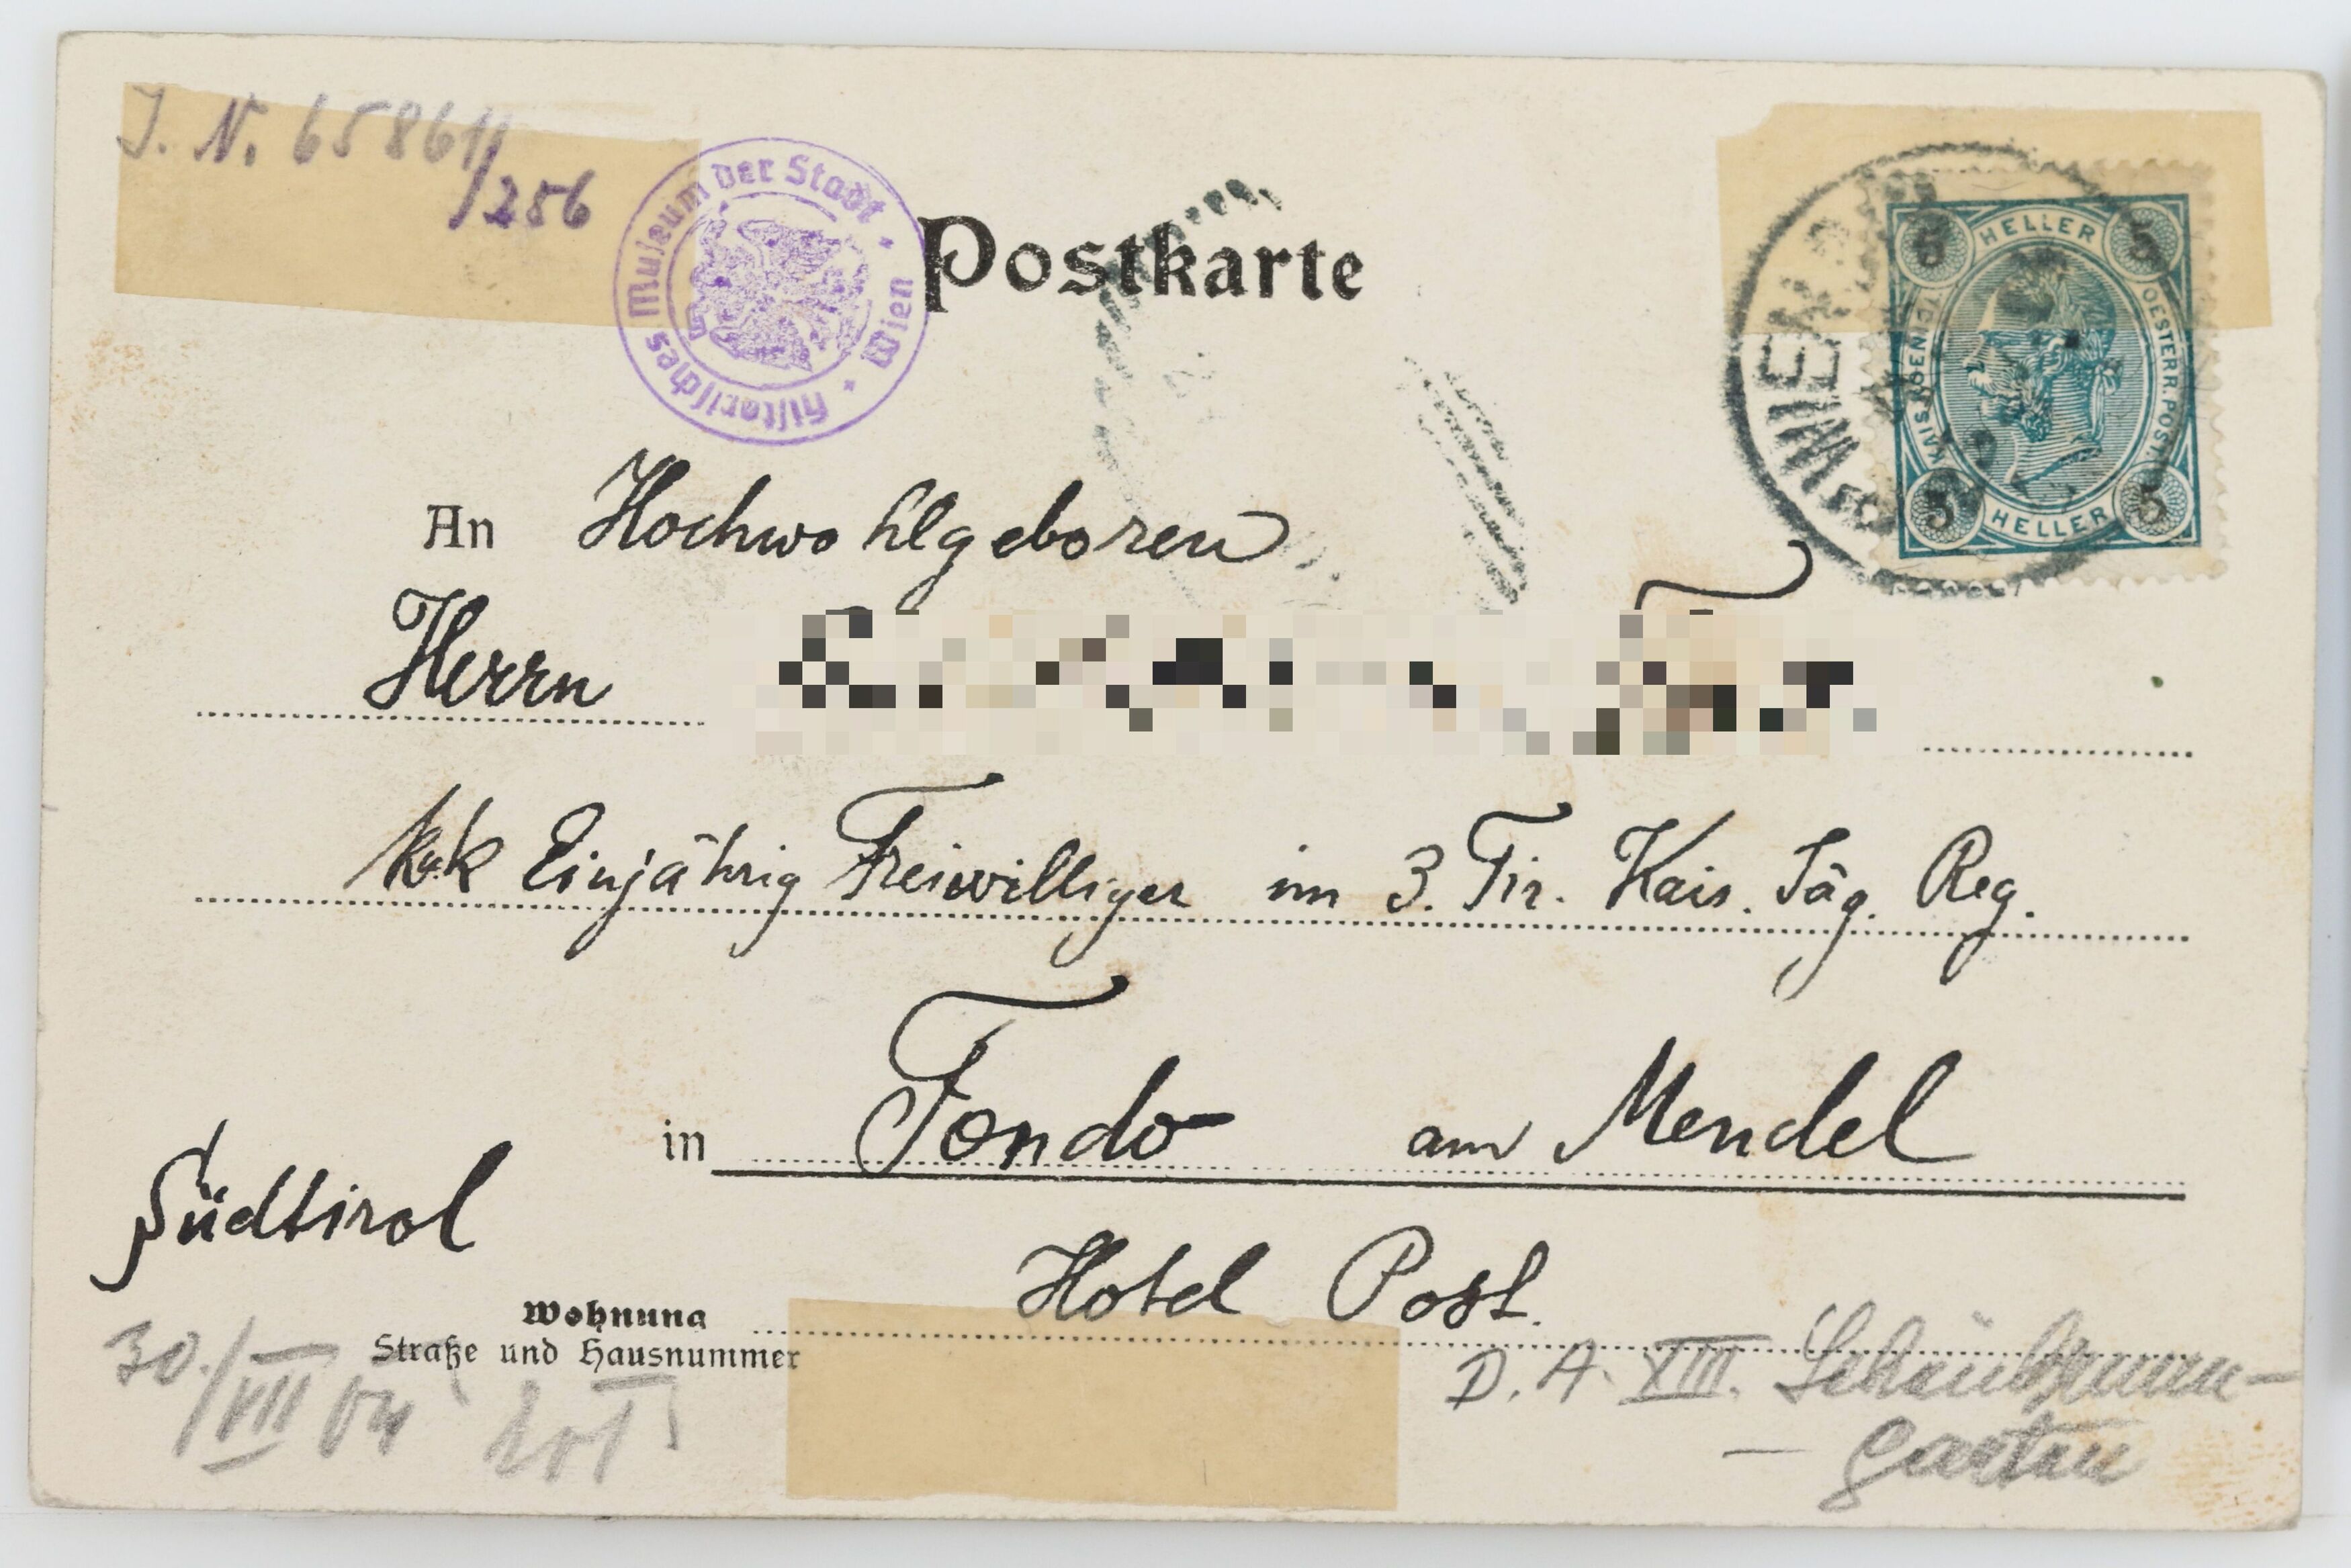 J. N. 65861/
/256
Historisches Museum der Stadt Wien
Postkarte
WIEN
5 HELLER 5
OESTERR. POST.
5 HELLER 5
An Hochwohlgeboren
Herrn
k.k Einjährig Freiwilliger im 3. Tir. Kais. Jäg. Reg.
in Fondo am Mendel
Südtirol
Hotel Post.
Wohnung
Straße und Hausnummer
30./VII 04
D. A. XIII. Schönbrunn-
garten